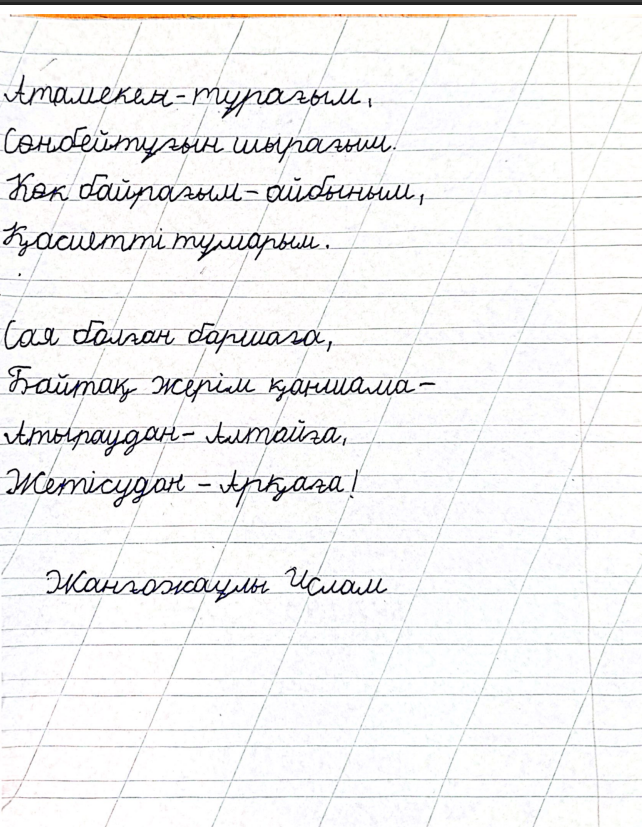 Атамекен - тұрағым,
Сөнбейтұғын шырағым.
Көк байрағым - айбыным,
Қасиетті тұмарым.
Сая болған баршаға,
Байтақ жерім қаншама -
Атыраудан - Алтайға,
Жетісудан - Арқаға!
Жанғожаұлы Ислам